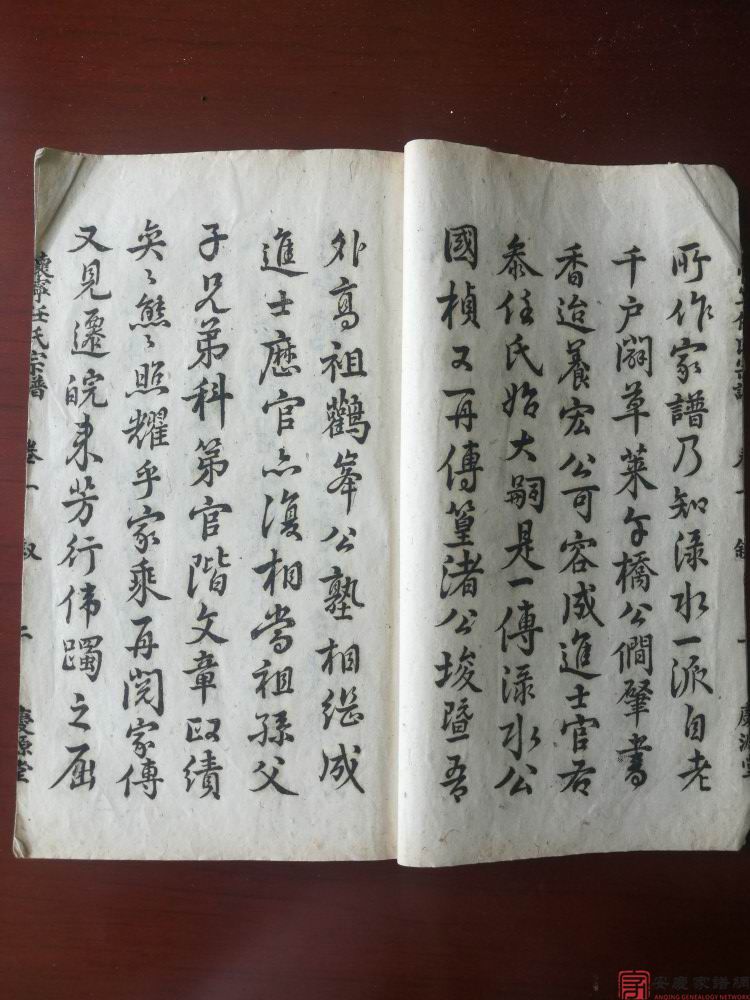 所作家譜乃知淥水一派自老
千户闢草萊午橋公僩肇書
香迨養宏公可容成進士官右
叅任氏始大嗣是一傳淥水公
國楨又再傳篁渚公埈曁吾
外高祖鸛峯公塾相繼成
進士歷官亦復相當祖孫父
子兄弟科第官階文章政績
奕〻熊〻照耀乎家乘再閱家傳
又見遷皖來芳行偉躅之屈
懷寧任氏宗譜 卷一 敘 二 慶源堂
安慶家譜網
ANQING GENEALOGY NETWORK